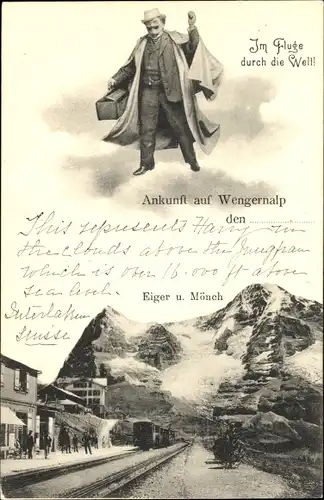 Im Fluge
durch die Welt!
Ankunft auf Wengernalp
den
This represents Harry in
the clouds above the Jungfrau
which is over 16.000 ft above
sea level.
Eiger u. Mönch
Interlaken
Suisse